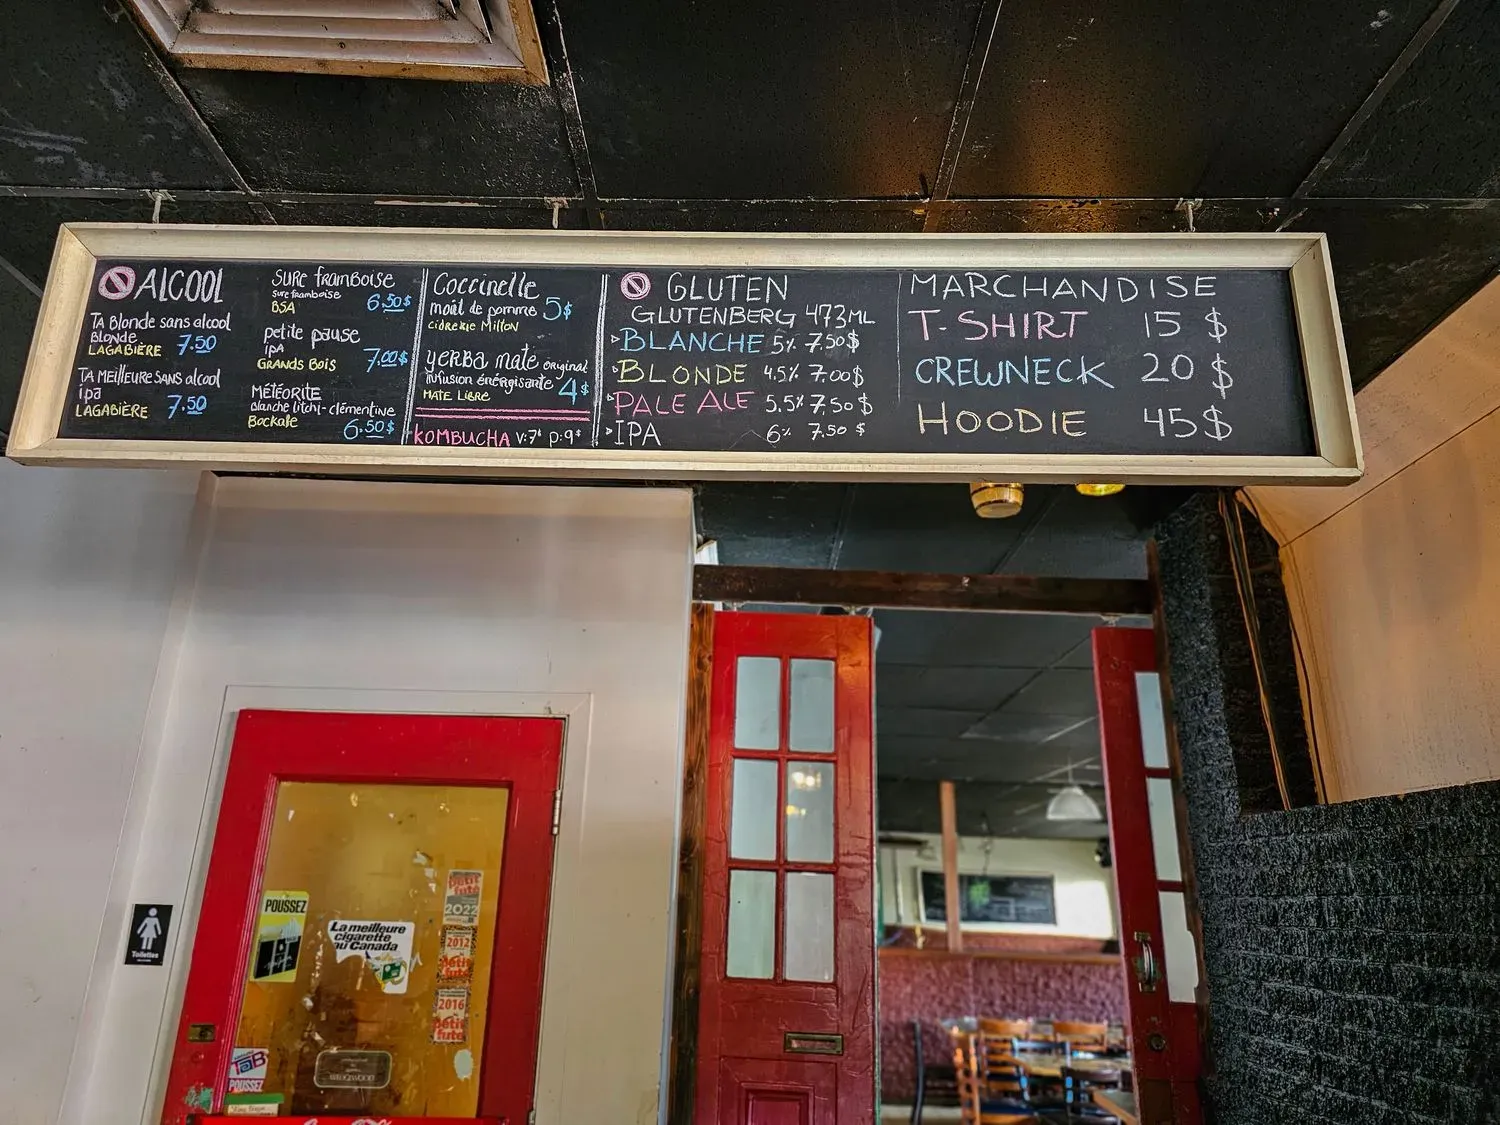 ALCOOL
TA Blonde sans alcool
BLONDE
LAGABIÈRE 7.50
TA MEILLEURE SANS alcool
ipa
LAGABIÈRE 7.50
SURE framboise
sure framboise 6.50$
BSA
petite pause
IPA 7.00$
GRANDS BOIS
MÉTÉORITE
blanche litchi-clémentine
Bockale 6.50$
Coccinelle
moût de pomme 5$
CIDRERIE Milton
yerba mate original
infusion énergisante 4$
MATE LIBRE
KOMBUCHA V:7$ P:9$
GLUTEN
GLUTENBERG 473ML
BLANCHE 5% 7.50$
BLONDE 4.5% 7.00$
PALE ALE 5.5% 7.50$
IPA 6% 7.50$
MARCHANDISE
T-SHIRT 15 $
CREWNECK 20 $
HOODIE 45$
Toilettes
POUSSEZ
La meilleure
cigarette
au Canada
petit
futé
2022
2012
petit
futé
2016
petit
futé
TAB
POUSSEZ